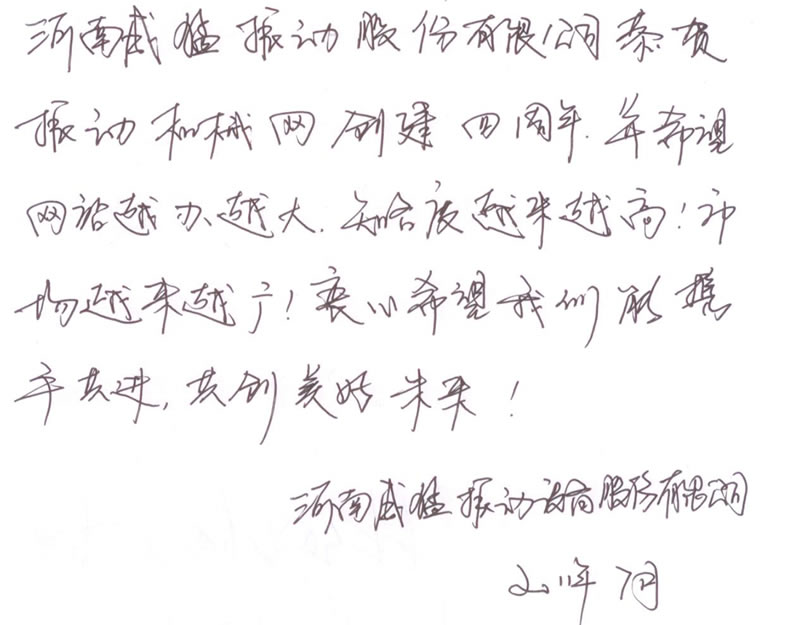 河南威猛振动股份有限公司恭贺
振动机械网创建四周年.并希望
网站越办越大.知名度越来越高!市
场越来越广!衷心希望我们能携
手共进,共创美好未来!
河南威猛振动设备股份有限公司
2011年7月